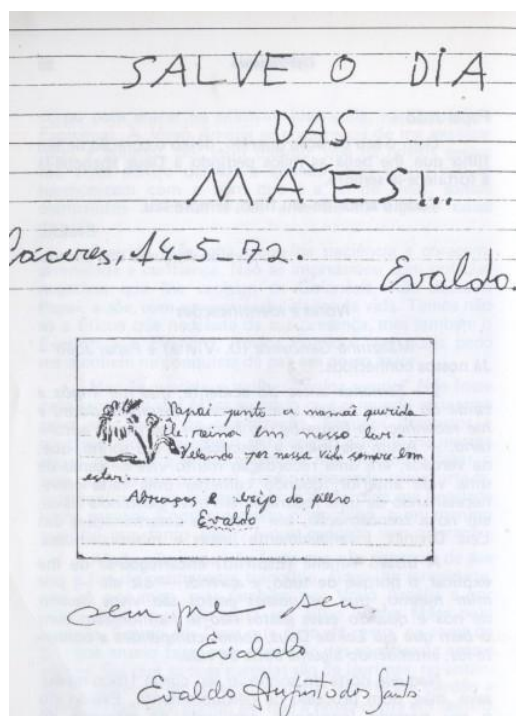 SALVE O DIA
DAS
MÃES...
Cáceres, 14-5-72.
Evaldo.
Papai junto a mamãe querida
É reinar em nosso lar.
Velando por nossa vida sempre em
estar.
Abraços e beijo do filho
Evaldo
Sempre seu
Evaldo
Evaldo Augusto dos Santos